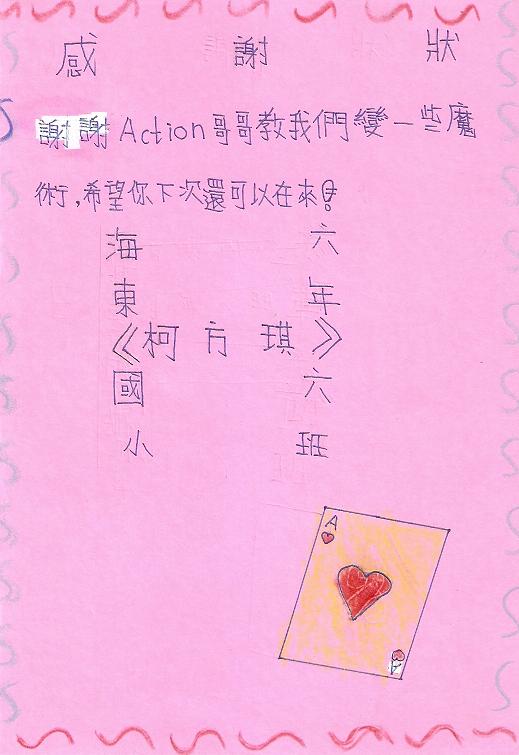 感謝狀
謝謝Action哥哥教我們變一些魔
術,希望你下次還可以在來!
海 六
東 年
《柯方琪》
國 六
小 班
A
A